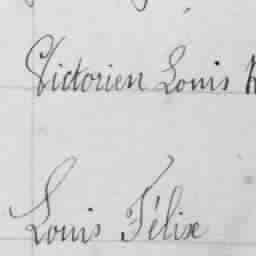 Victorien Louis
Louis Félix